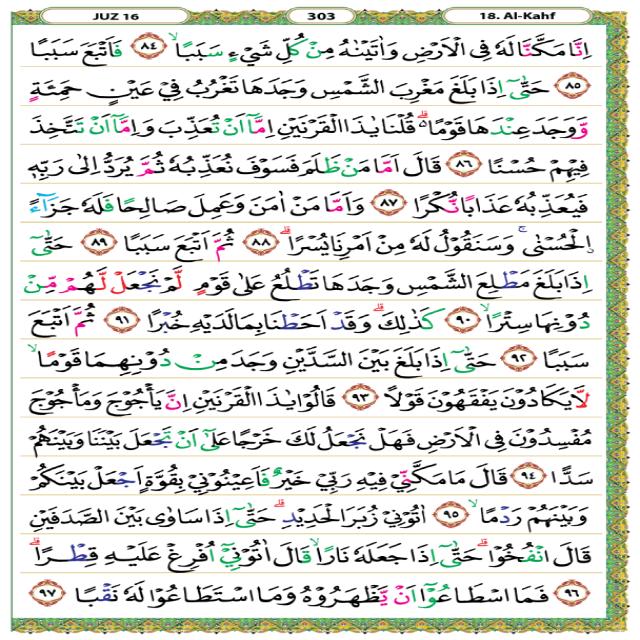 JUZ 16 303 18. Al-Kahf
اِنَّا مَكَّنَّا لَهٗ فِى الْاَرْضِ وَاٰتَيْنٰهُ مِنْ كُلِّ شَيْءٍ سَبَبًاۙ ٨٤ فَاَتْبَعَ سَبَبًا
٨٥ حَتّٰىٓ اِذَا بَلَغَ مَغْرِبَ الشَّمْسِ وَجَدَهَا تَغْرُبُ فِيْ عَيْنٍ حَمِئَةٍ
وَّوَجَدَ عِنْدَهَا قَوْمًا ەۗ قُلْنَا يٰذَا الْقَرْنَيْنِ اِمَّآ اَنْ تُعَذِّبَ وَاِمَّآ اَنْ تَتَّخِذَ
فِيْهِمْ حُسْنًا ٨٦ قَالَ اَمَّا مَنْ ظَلَمَ فَسَوْفَ نُعَذِّبُهٗ ثُمَّ يُرَدُّ اِلٰى رَبِّهٖ
فَيُعَذِّبُهٗ عَذَابًا نُّكْرًا ٨٧ وَاَمَّا مَنْ اٰمَنَ وَعَمِلَ صَالِحًا فَلَهٗ جَزَاۤءً
ۨالْحُسْنٰىۚ وَسَنَقُوْلُ لَهٗ مِنْ اَمْرِنَا يُسْرًاۗ ٨٨ ثُمَّ اَتْبَعَ سَبَبًا ٨٩ حَتّٰىٓ
اِذَا بَلَغَ مَطْلِعَ الشَّمْسِ وَجَدَهَا تَطْلُعُ عَلٰى قَوْمٍ لَّمْ نَجْعَلْ لَّهُمْ مِّنْ
دُوْنِهَا سِتْرًاۙ ٩٠ كَذٰلِكَۗ وَقَدْ اَحَطْنَا بِمَا لَدَيْهِ خُبْرًا ٩١ ثُمَّ اَتْبَعَ
سَبَبًا ٩٢ حَتّٰىٓ اِذَا بَلَغَ بَيْنَ السَّدَّيْنِ وَجَدَ مِنْ دُوْنِهِمَا قَوْمًاۙ
لَّا يَكَادُوْنَ يَفْقَهُوْنَ قَوْلًا ٩٣ قَالُوْا يٰذَا الْقَرْنَيْنِ اِنَّ يَأْجُوْجَ وَمَأْجُوْجَ
مُفْسِدُوْنَ فِى الْاَرْضِ فَهَلْ نَجْعَلُ لَكَ خَرْجًا عَلٰىٓ اَنْ تَجْعَلَ بَيْنَنَا وَبَيْنَهُمْ
سَدًّا ٩٤ قَالَ مَا مَكَّنِّيْ فِيْهِ رَبِّيْ خَيْرٌ فَاَعِيْنُوْنِيْ بِقُوَّةٍ اَجْعَلْ بَيْنَكُمْ
وَبَيْنَهُمْ رَدْمًاۙ ٩٥ اٰتُوْنِيْ زُبَرَ الْحَدِيْدِۗ حَتّٰىٓ اِذَا سَاوٰى بَيْنَ الصَّدَفَيْنِ
قَالَ انْفُخُوْاۗ حَتّٰىٓ اِذَا جَعَلَهٗ نَارًاۙ قَالَ اٰتُوْنِيْٓ اُفْرِغْ عَلَيْهِ قِطْرًاۗ
٩٦ فَمَا اسْطَاعُوْٓا اَنْ يَّظْهَرُوْهُ وَمَا اسْتَطَاعُوْا لَهٗ نَقْبًا ٩٧